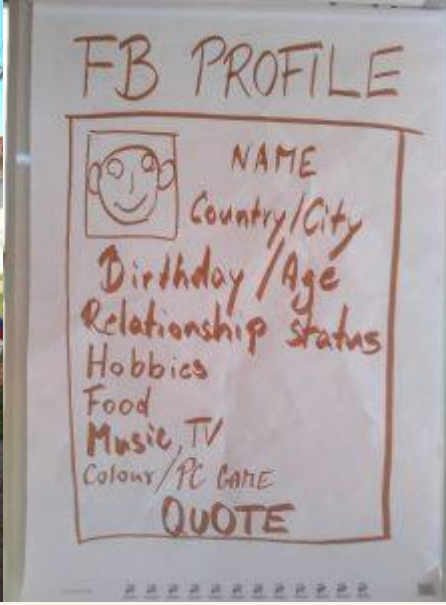 FB PROFILE
NAME
Country/City
Birthday/Age
Relationship status
Hobbies
Food
Music, TV
Colour/PC GAME
QUOTE